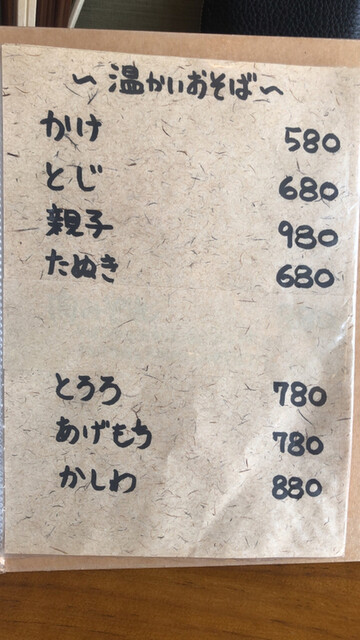 ～温かいおそば～
かけ 580
とじ 680
親子 980
たぬき 680
とろろ 780
あげもち 780
かしわ 880